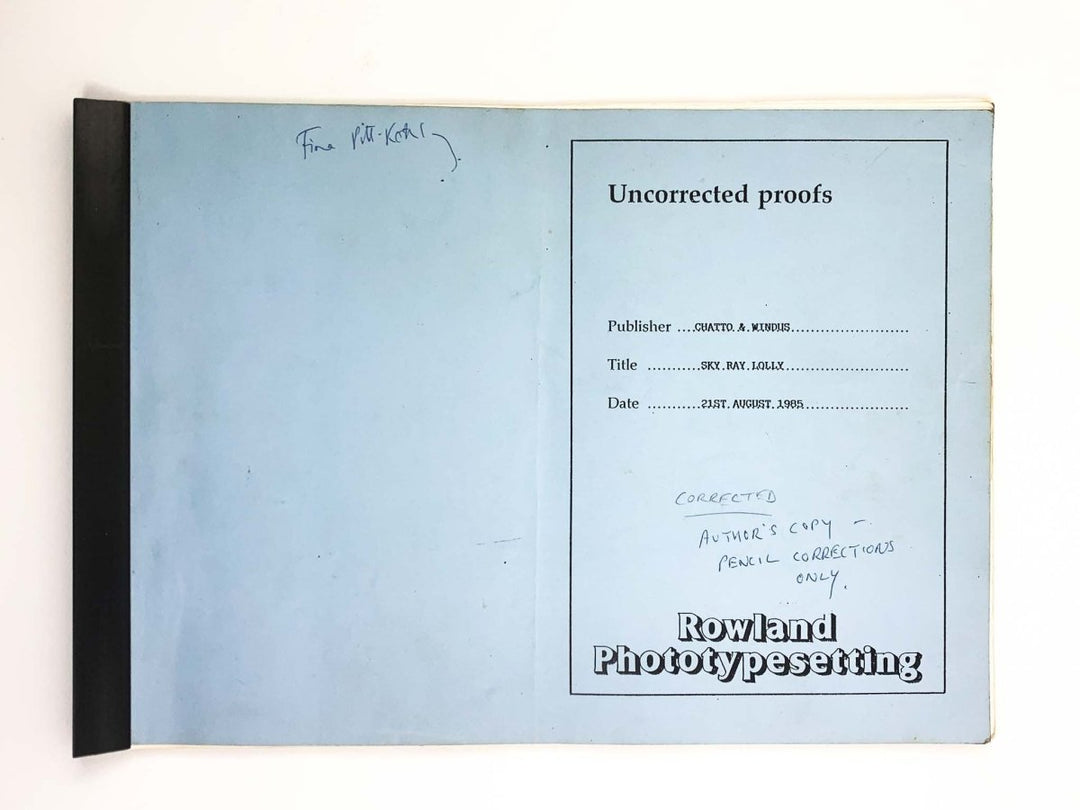 Fiona Pitt-Kethley.
Uncorrected proofs
Publisher ....CHATTO.&.WINDUS........................
Title ...........SKY.RAY.LOLLY.........................
Date ...........21ST.AUGUST.1985.....................
CORRECTED
AUTHOR'S COPY –
PENCIL CORRECTIONS
ONLY.
Rowland
Phototypesetting